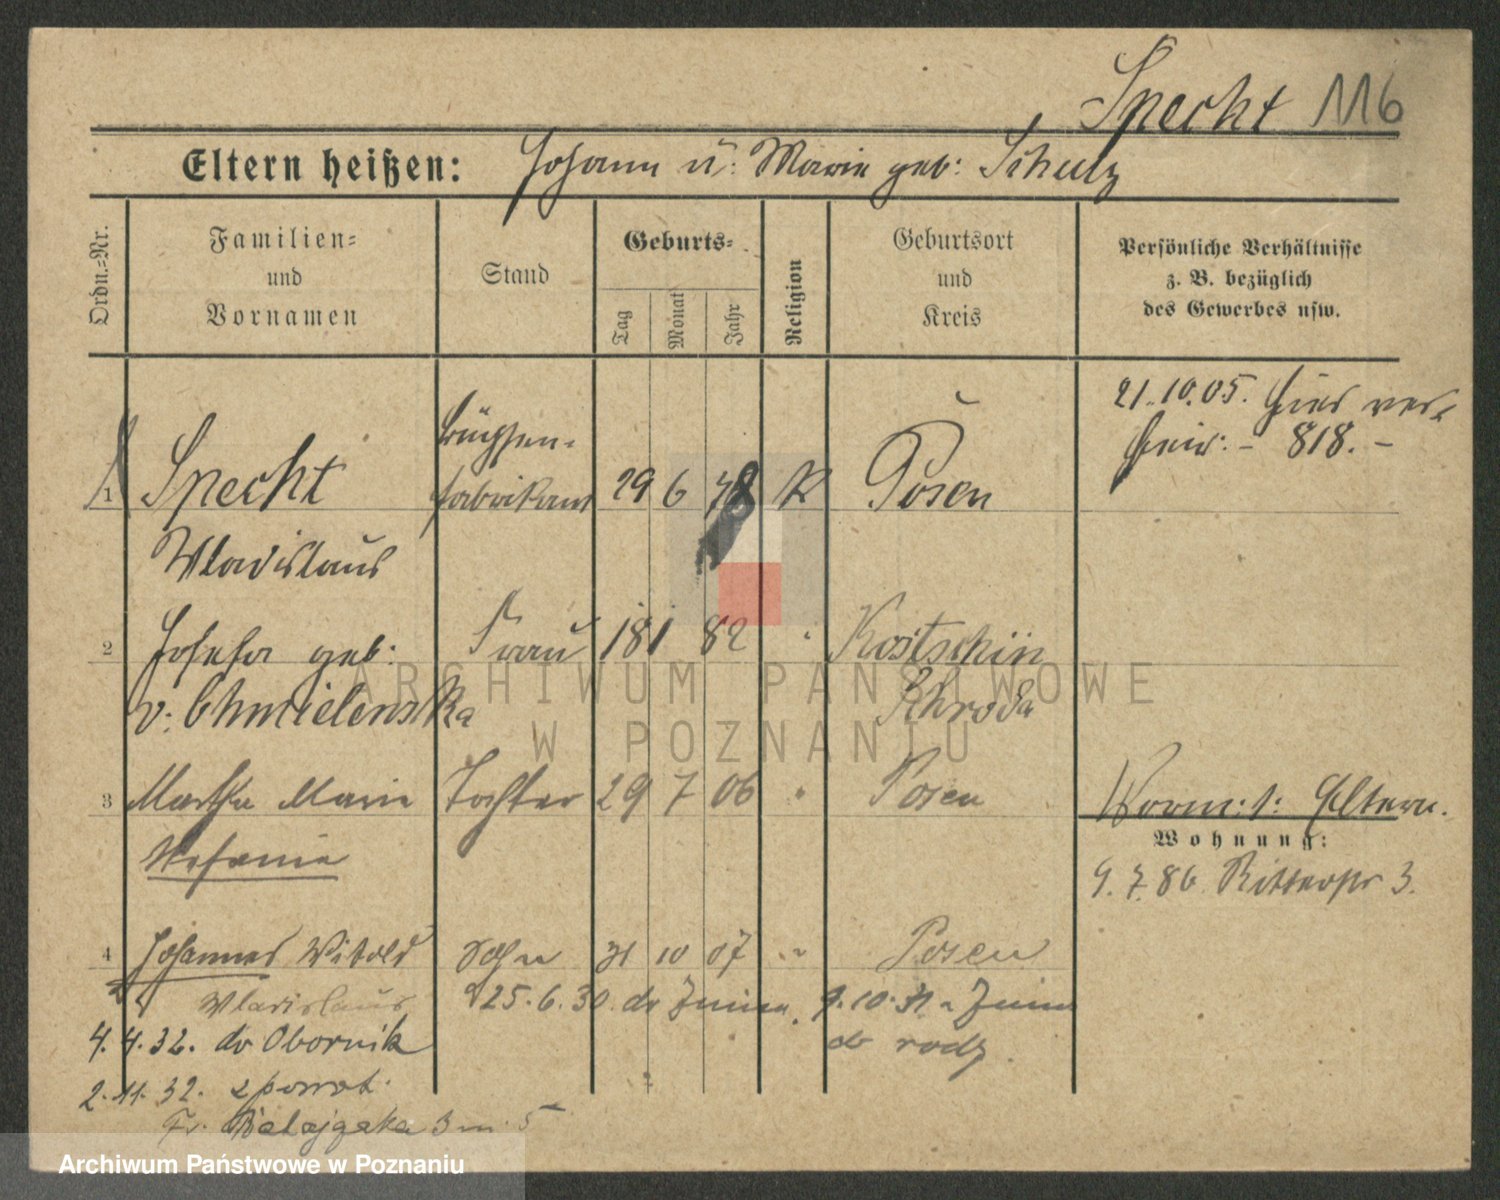 Specht 116
Eltern heißen: Johann u: Marie geb: Schulz
Ordn.-Nr.
Familien-
und
Vornamen
Stand
Geburts-
Tag
Monat
Jahr
Religion
Geburtsort
und
Kreis
Persönliche Verhältnisse
z. B. bezüglich
des Gewerbes usw.
21.10.05. Hier ver-
heir: - 818. -
1 Specht
Wladislaus
fabrikant 29 6 78 K Posen
2 Josefa geb: Frau 18 1 82 " Kostschin
v: Chmielenska Schroda
3 Martha Marie Tochter 29 7 06 " Posen
Stefanie
Vorm: s: Eltern.
Wohnung:
9. 7. 86 Ritterstr 3.
4 Johannes Witold Sohn 31 10 07 " Posen
Wladislaus 25. 6. 30. do 9. 10. 31 z
4. 4. 32. do Obornik do rodz.
2. 11. 32. z powrot.
Fr. Ratajczaka 3 m. 5
ARCHIWUM PAŃSTWOWE
W POZNANIU
Archiwum Państwowe w Poznaniu